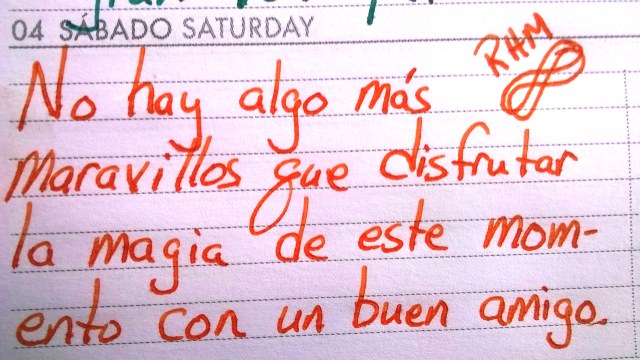 04 SÁBADO SATURDAY
RHM
No hay algo más
maravillos que disfrutar
la magia de este mom-
ento con un buen amigo.